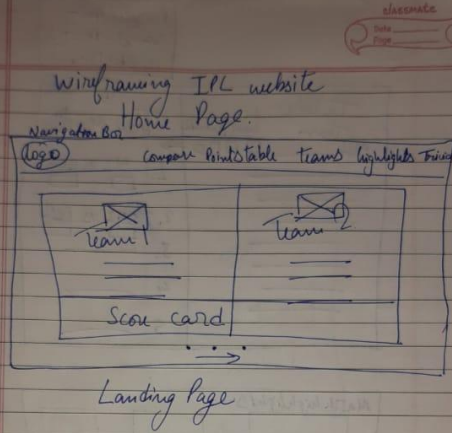 classmate
Date
Page
Wireframing IPL website
Home Page.
Navigation Bar
Logo Compare Points table Teams highlights
Team 1 Team 2
Score card
Landing Page